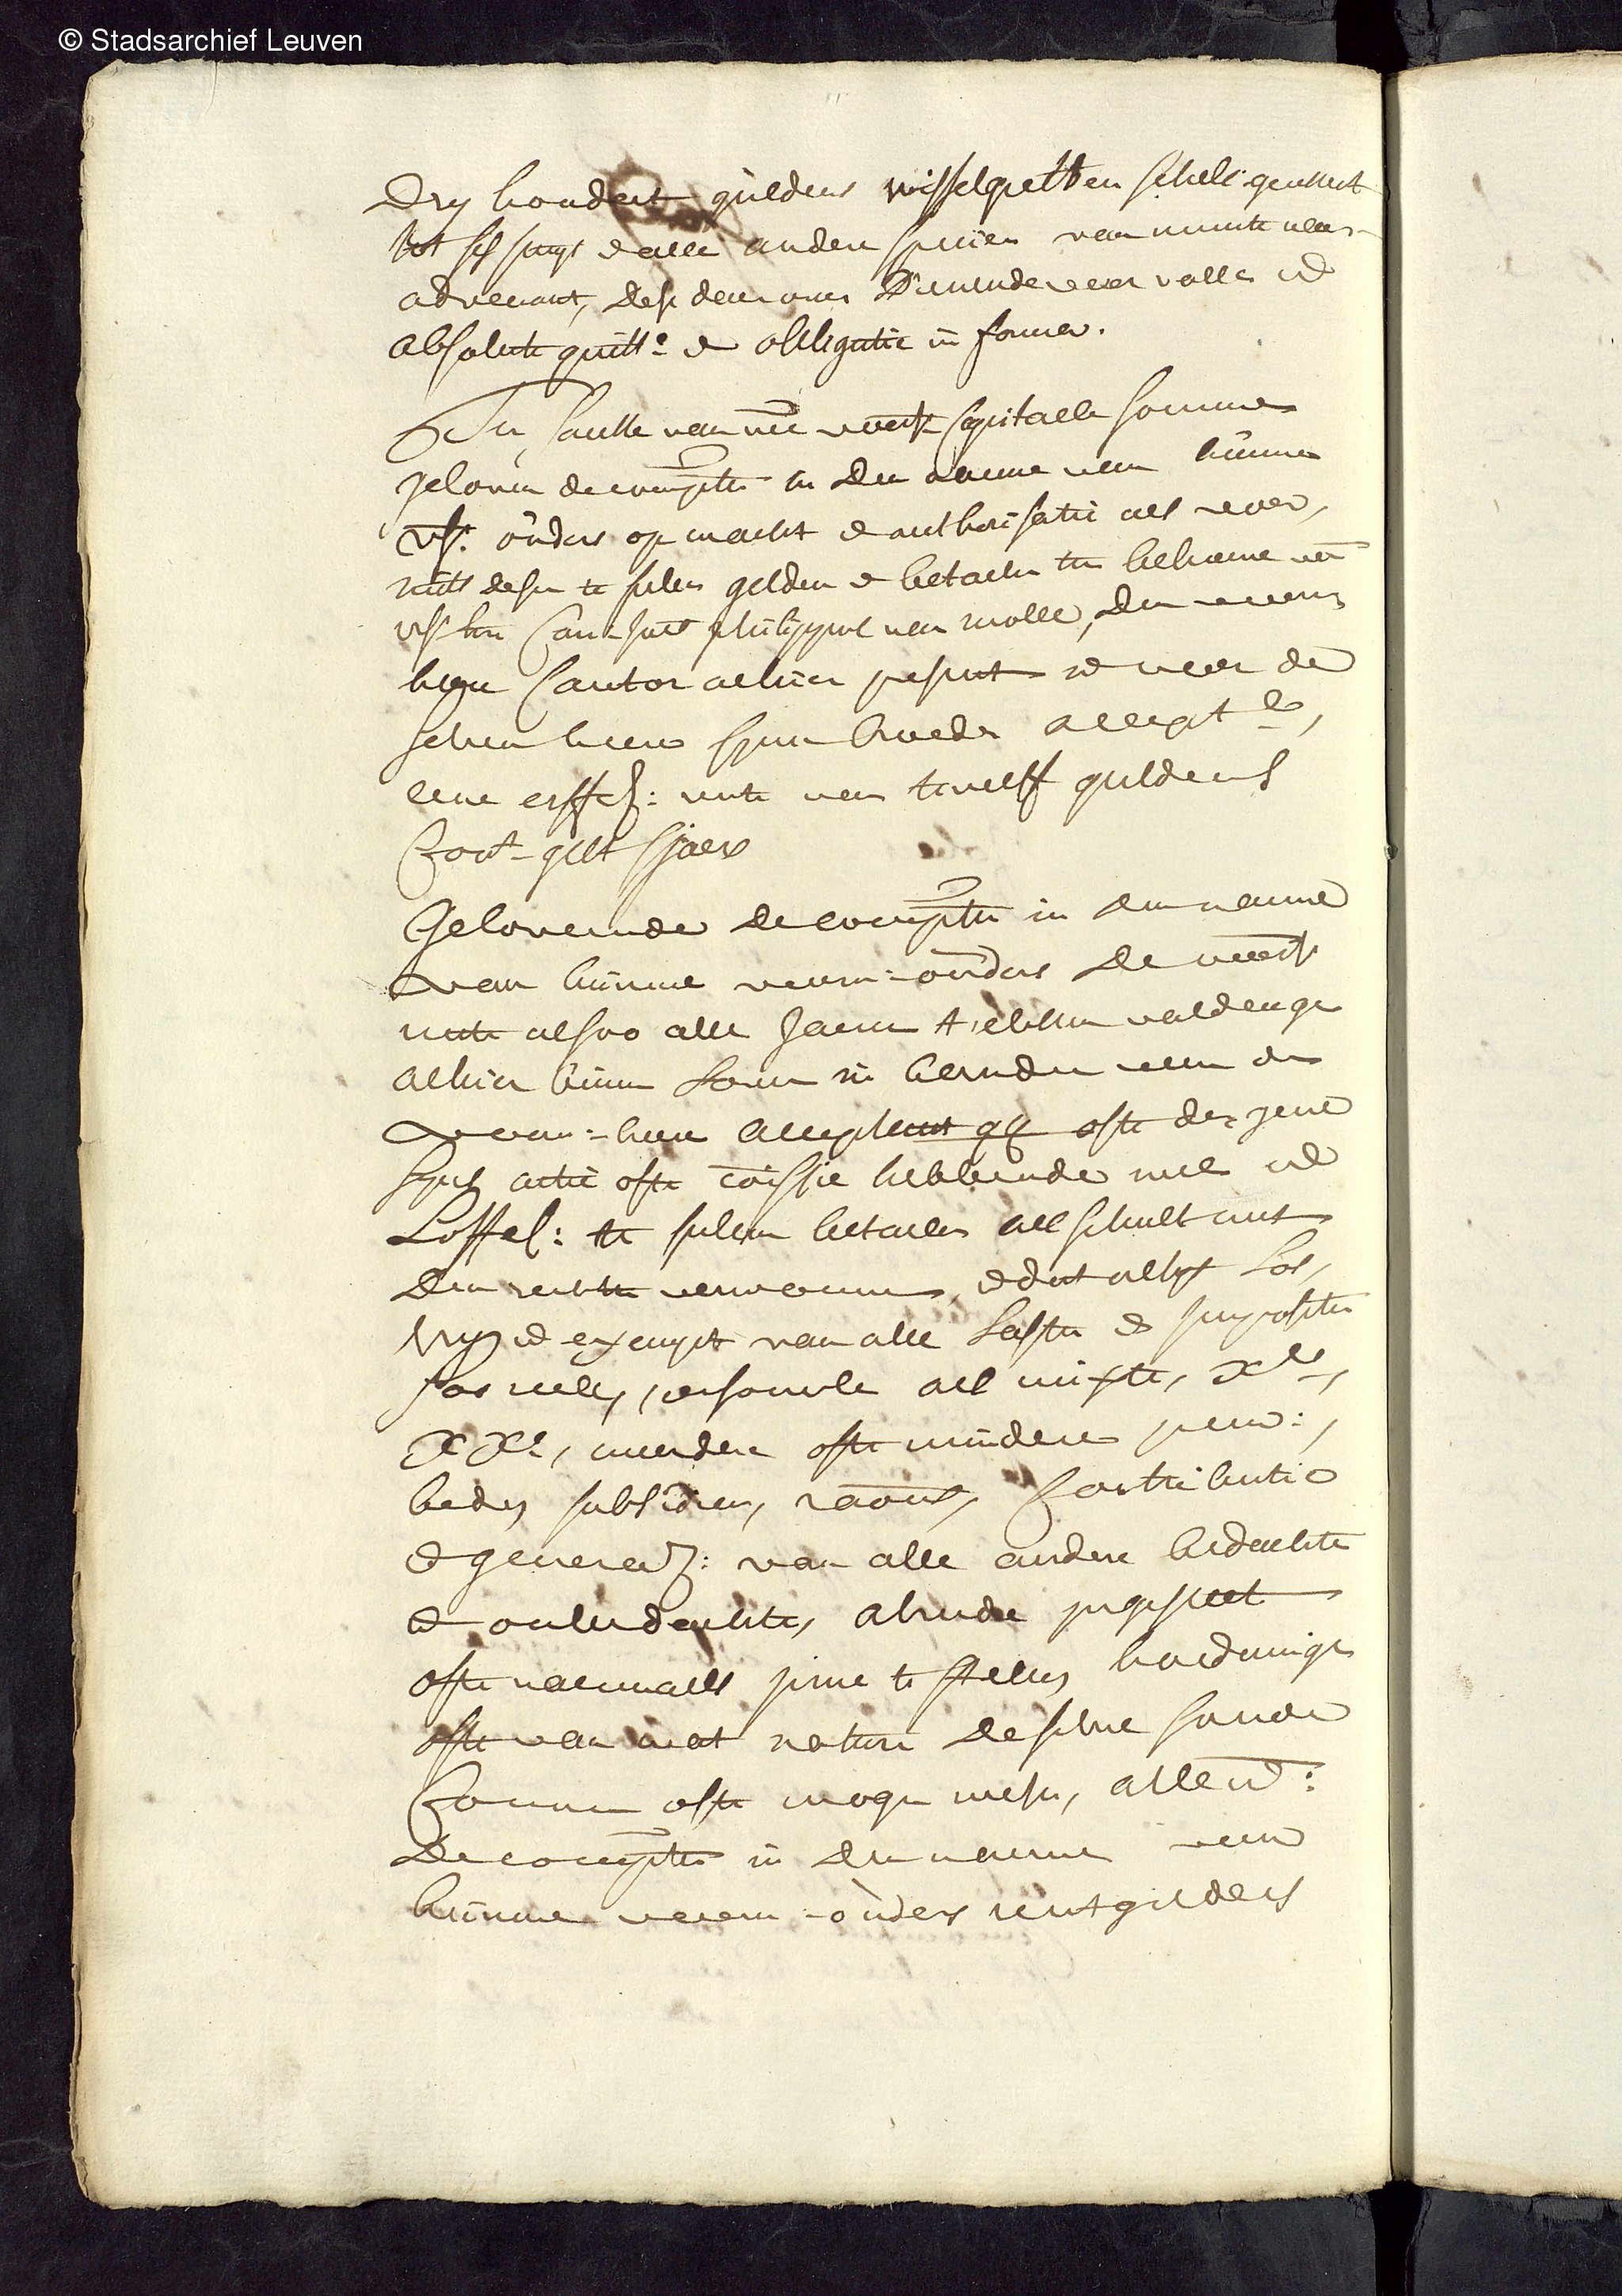 © Stadsarchief Leuven
Dry hondert guldens wisselgelt en schel: gereckent
tot ses st: ende alle andere specien van munte naer
advenant, dese dienende voor volle ende
absolute quitt.e ende obligatie in forma.
voorss capitaele somme
geloven de comp.ten in den naeme van hunne
vs: ouders op macht ende authorisatie als voor,
mits desen te sullen gelden ende betaelen ten behoeve van
vs heer Philippus van Molle, den voorn
heere Cantor alhier present ende voor de
selven heere synen broeder accept.de,
eene erffel: rente van twelff guldens
Cour.t gelt sjaers
Gelovende de comp.ten in den naeme
van hunne voorn: ouders de voorss
rente alsoo alle jaeren t'elcken valdenge
alhier binnen Loven in handen van den
voorn: heere acceptant qq ofte der gene
syns actie ofte hebbende wel ende
Loffel: te sullen betaelen als schult met
den rechte verwonnen, ende dat altyt los,
vry ende exempt van alle lasten ende impositien
soo reele, personele als mixte, X.de,
XX.e, meerdere ofte mindere penn:,
beden, subsidien, Contributie
ende generael: van alle andere bedachte
ende onbedachte, alreede ingestelt
ofte naermaels inne te stellen hoedanige
ofte van wat nature deselve souden
Connen ofte mogen wesen, allen:
De comp.ten in den naeme van
hunne voorn: ouders rentgelders